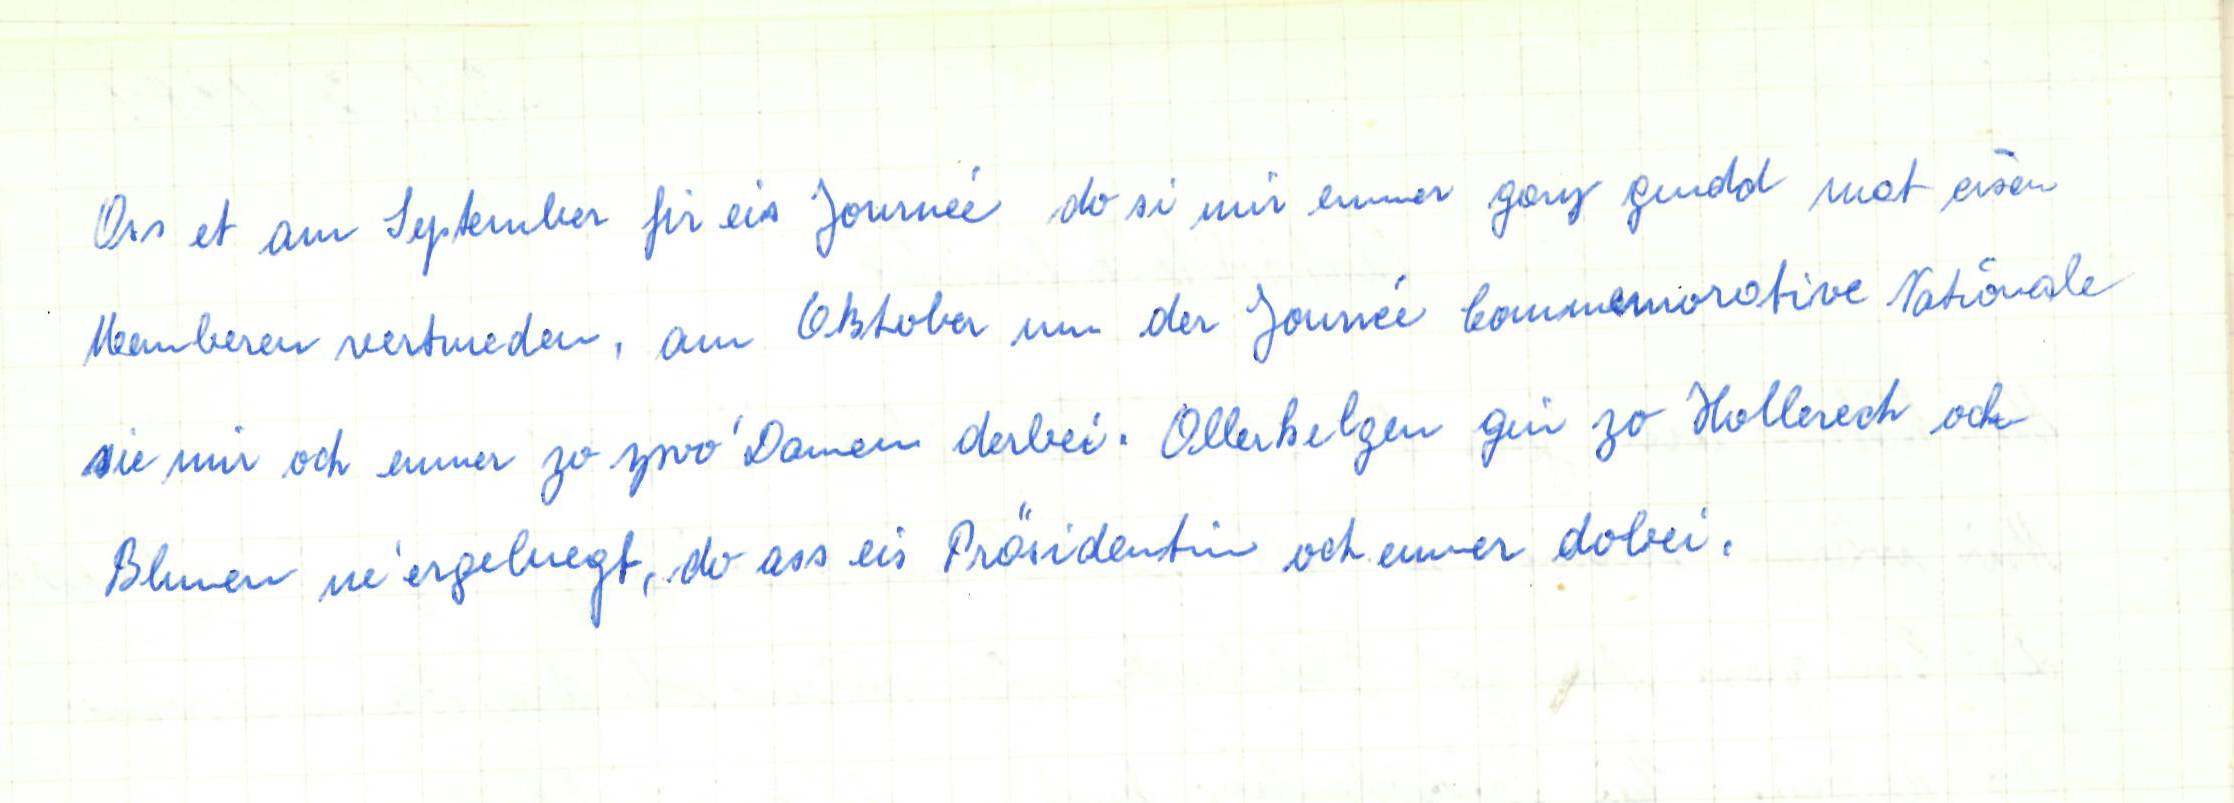 Ass et am September fir eis Journeé do si mir emmer ganz gudd mat eisen
Memberen vertrueden, am Oktober um der Journeé Commemorative Nationale
sie mir och emmer zo zwo' Damen derbei. Ollerhelgen gin zo Hollerech och
Blumen ne'ergeluegt, do ass eis Präsidentin och emmer dobei.